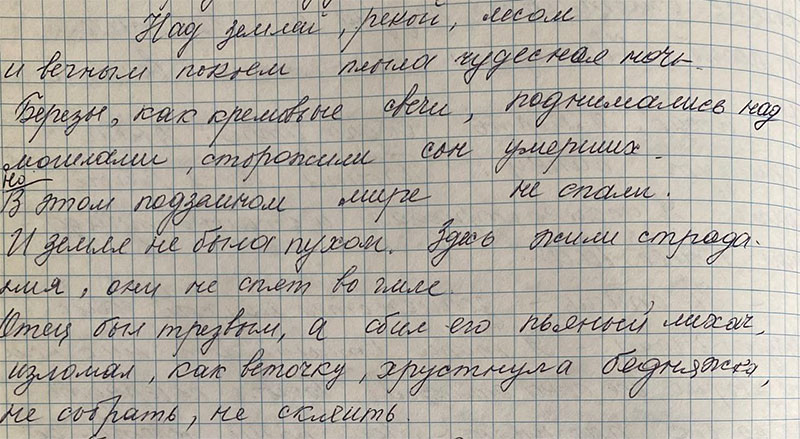 Над землёй, рекой, лесом
и вечным покоем плыла чудесная ночь.
Березы, как кремовые свечи, поднимались над
могилами, сторожили сон умерших.
но
В этом подзаином мире не спали.
И земля не была пухом. Здесь жили страда-
ния, они не спят во гмле.
Отец был трезвым, а сбил его пьяный лихач,
изломал, как веточку, хрустнула бедняжка,
не собрать, не склеить.